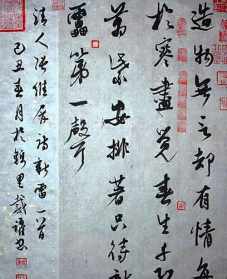 造物無言却有情每
於寒盡覺春生千紅
萬紫安排著只待新
靁第一聲
清人張維屏詩新雷一首
己丑春月於魏里戴